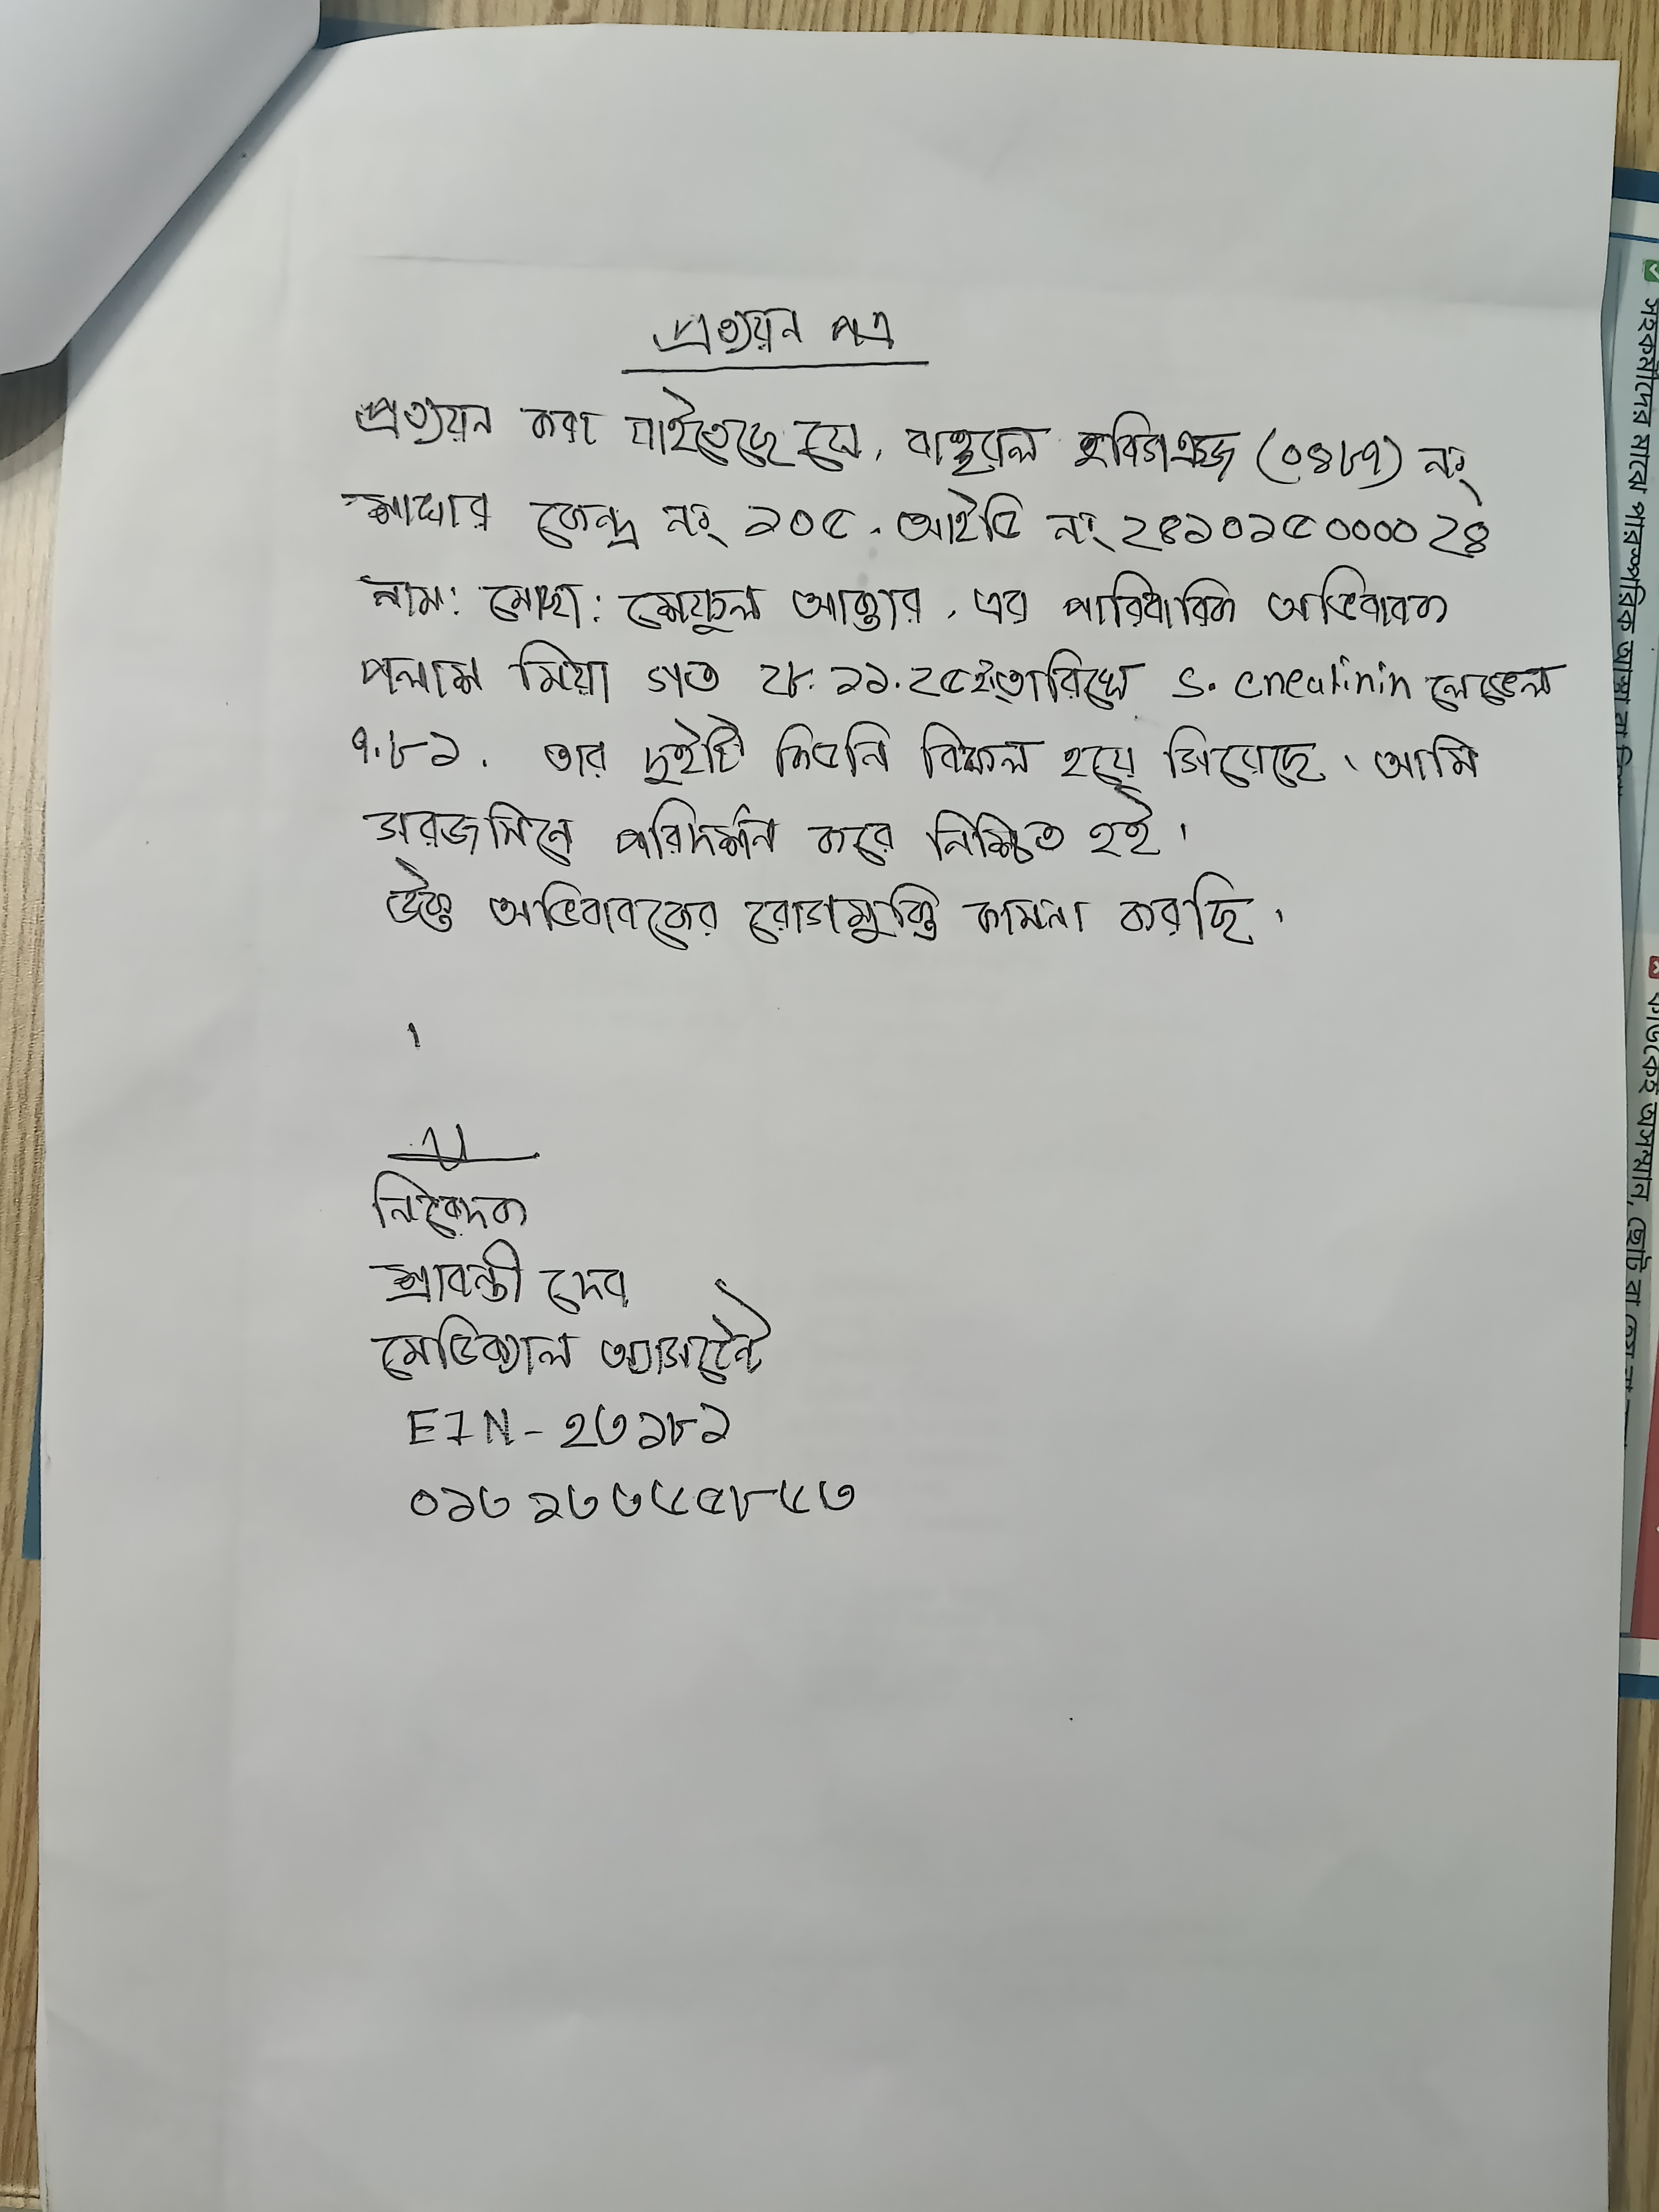 প্রত্যয়ন পত্র
প্রত্যয়ন করা যাইতেছে যে, বাহুবল হবিগঞ্জ (০৪৮৭) নং
শাখার কেন্দ্র নং ১০৫. আইডি নং ২৪১০১৫০০০০২৪
নাম: মোছা: শেফুল আক্তার, এর পারিবারিক অভিবাবক
পলাশ মিয়া গত ২৮.১১.২৫ইং তারিখে S. creatinin লেভেল
৭.৮১. তার দুইটি কিডনি বিকল হয়ে গিয়েছে। আমি
সরজমিনে পরিদর্শন করে নিশ্চিত হই।
উক্ত অভিবাবকের রোগমুক্তি কামনা করছি।
নিবেদক
শ্রাবন্তী দেব
মেডিক্যাল
EIN - ২৩১৮১
০১৩১৩৩৬৫৮৬৩
সহকর্মীদের মাঝে পারস্পরিক
কাউকেই অসম্মান, ছোট বা